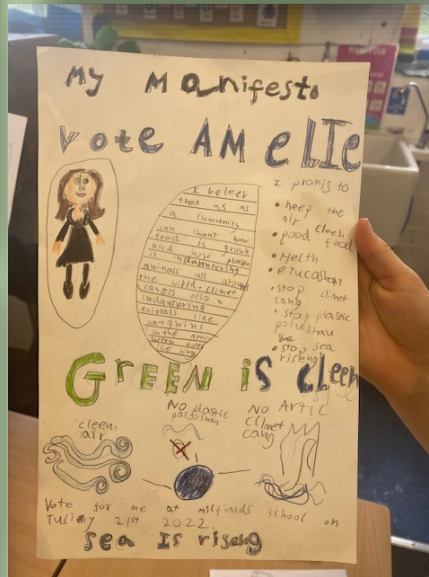 My Manifesto
Vote AMELIE
I beleev
that us as
a comunity
can chant how
food is grown
and how plastic
is indangering
animals all around
the world. climet
cangs also
indangering
animals like
pangwins
in the
ice
I promis to
• keep the
air cleen
• good food
• Helth
• educashon
• stop climet
cang
• stop plastic
• stop sea
riseng
GrEEN is Cleen
cleen
air
No plastic
No Artic
climet
cang
Vote for me at millfields school on
21st 2022.
Sea Is riseng